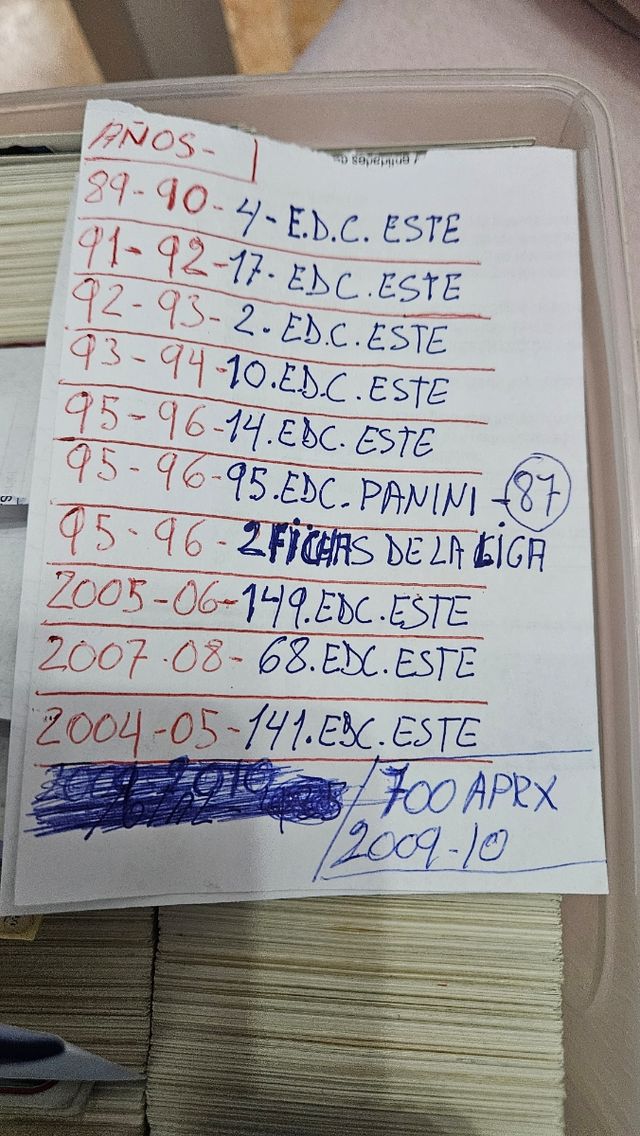 AÑOS-
89-90-4-E.D.C. ESTE
91-92-17-EDC.ESTE
92-93-2.EDC.ESTE
93-94-10.EDC.ESTE
95-96-14.EDC.ESTE
95-96-95.EDC.PANINI-87
95-96-2FICHAS DE LA LIGA
2005-06-149.EDC.ESTE
2007-08-68.EDC.ESTE
2004-05-141.EDC.ESTE
700 APRX
2009-10